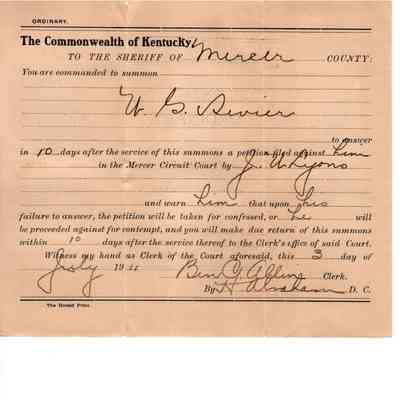 ORDINARY.
The Commonwealth of Kentucky,
TO THE SHERIFF OF Mercer COUNTY:
You are commanded to summon
W. G. Sevier
to answer
in 10 days after the service of this summons a petition filed against him
in the Mercer Circuit Court by J. W. Lyons
and warn him that upon his
failure to answer, the petition will be taken for confessed, or he will
be proceeded against for contempt, and you will make due return of this summons
within 10 days after the service thereof to the Clerk's office of said Court.
Witness my hand as Clerk of the Court aforesaid, this 3 day of
July 19 Ben Allin Clerk.
By Abraham D. C.
The Herald Print.